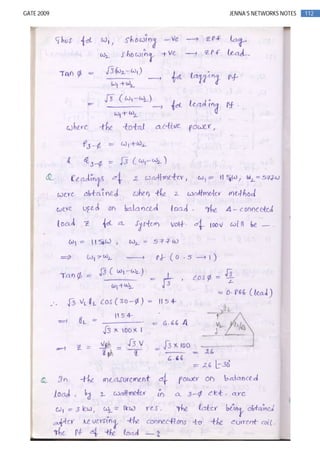 GATE 2009
JENNA'S NETWORKS NOTES 112
Thus for ω₁, showing -ve → ZPF lag
ω₂ showing +ve → ZPF lead.
Tan φ = √3(ω₂-ω₁) / ω₁+ω₂ → for lagging Pf
= √3 (ω₁-ω₂) / ω₁+ω₂ → for leading Pf.
where the total active power,
P3-φ = ω₁+ω₂
& Q3-φ = √3 (ω₁-ω₂)
Q. Readings of 2 wattmeter, ω₁= 1154ω, ω₂=577ω
were obtained when the 2 wattmeter method
were used on balanced load. The Δ-connected
load Z for a system volt of 100V will be —
ω₁ = 1154ω, ω₂ = 577ω
⇒ ω₁>ω₂ → Pf (0.5 → 1)
Tan φ = √3 (ω₁-ω₂) / ω₁+ω₂ = 1/√3, cos φ = √3/2
= 0.866 (lead)
∴ √3 VL IL cos (30-φ) = 1154
⇒ IL = 1154 / √3 x 100 x 1 = 6.66 A
⇒ Z = Vph / Iph = √3 V / I = √3 x 100 / 6.66 = 26
= 26 ∠-30
Q. In the measurement of power on balanced
load. by 2 wattmeter in a 3-φ ckt. are
ω₁ = 3 kω, ω₂ = 1kω res. The later being obtained
after reversing the connections to the current coil.
The Pf of the load — ?